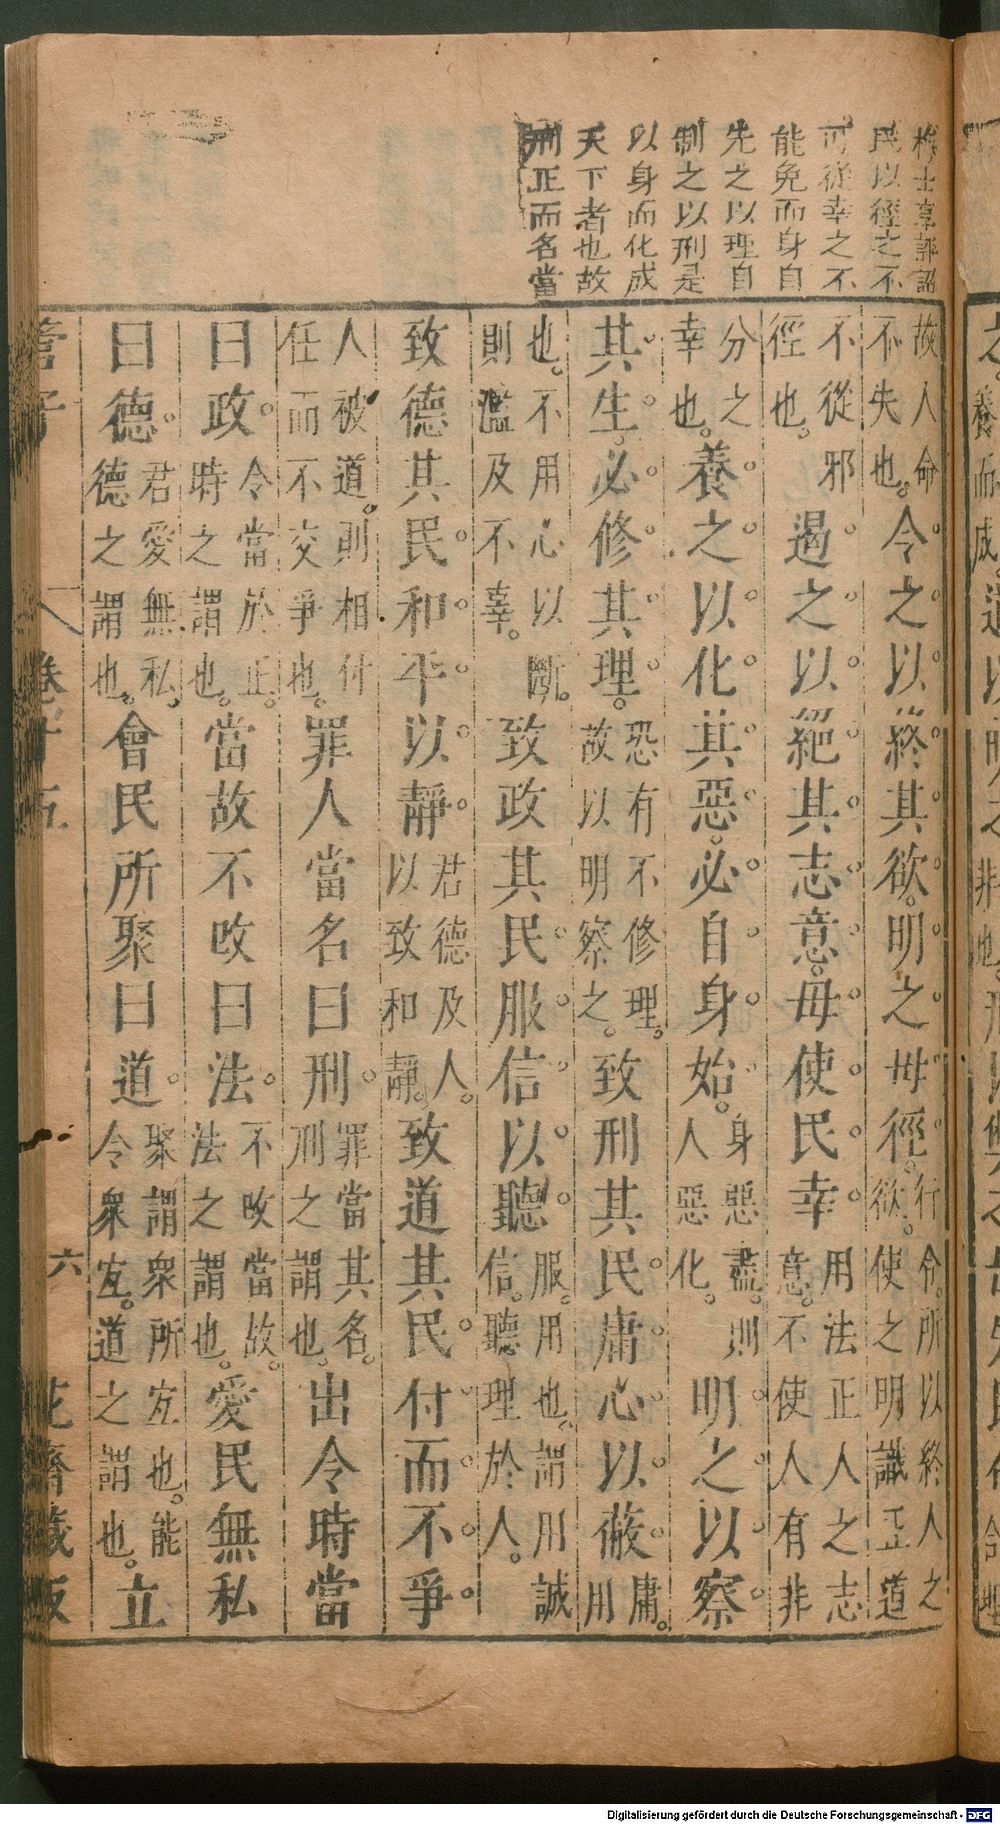 梅士享評詔
民以徑之不
可從幸之不
能免而身自
先之以理自
制之以刑是
以身而化成
天下者也故
刑正而名當
故人命不失也。令之以終其欲。明之毋徑。行令。所以終人之欲。使之明識正道
不從邪徑也。遏之以絕其志意。毋使民幸。用法正人之志意。不使人有非
分之幸也。養之以化其惡。必自身始。身惡盡。則人惡化。明之以察
其生。必修其理。恐有不修理。故以明察之。致刑其民庸心以蔽。庸。用
也。不用心以斷。則濫及不辜。致政其民服信以聽。服。用也。謂用誠信。聽理於人。
致德其民和平以靜。君德及人。以致和靜。致道其民付而不爭。
人被道。則相付任而不交爭也。罪人當名曰刑。罪當其名。刑之謂也。出令時當
曰政。令當於正。時之謂也。當故不改曰法。不改當故。法之謂也。愛民無私
曰德。君愛無私。德之謂也。會民所聚曰道。聚謂眾所宐也。能令眾宐。道之謂也。立
管子
卷十五
六
花齋藏板
Digitalisierung gefördert durch die Deutsche Forschungsgemeinschaft - DFG